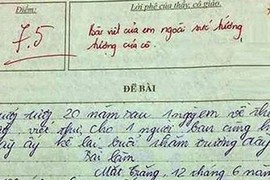 Điểm:
Lời phê của thầy, cô giáo
7.5
Bài viết của em ngoài sức tưởng
tượng của cô
ĐỀ BÀI
tượng 20 năm sau 1 ngày em về
viết thư cho 1 người bạn cùng
ấy kể lại buổi thăm trường
Bài làm
Mặt trăng, 12 tháng 6 năm